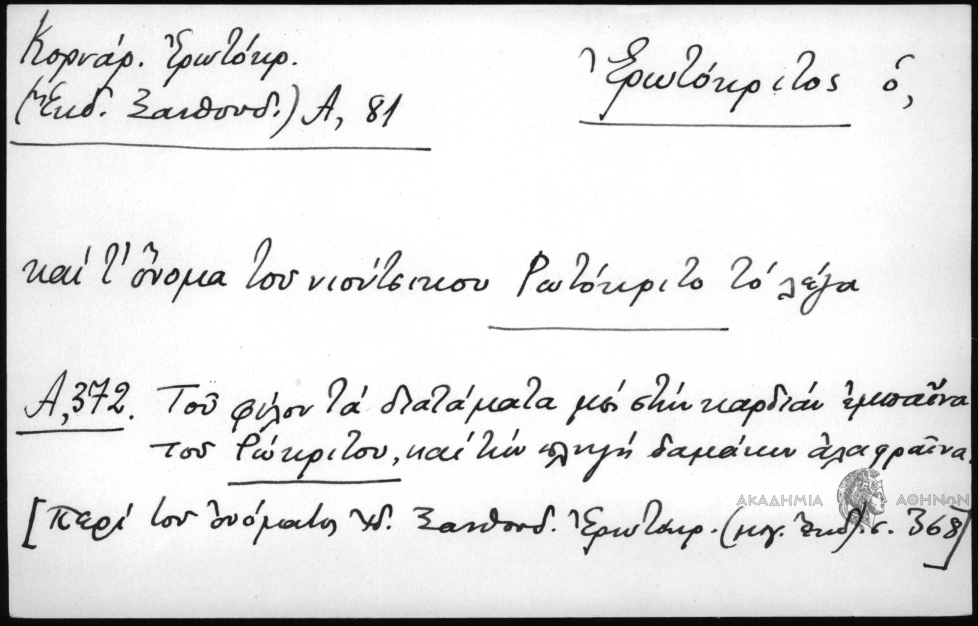 Κορνάρ. Ἐρωτόκρ.
(Ἔκδ. Ξανθουδ.) Α, 81
Ἐρωτόκριτος ὁ,
καί τ' ὄνομα του νιούτσικου Ρωτόκριτο τό λέγα
Α, 372. Τοῦ φίλου τά διατάματα μέσ στήν καρδιάν ἐμπαῖνα
του Ρώκριτου, καί τήν πληγή δαμάκιν ἀλαφραῖνα.
[περί του ὀνόματος ἰδ. Ξανθουδ. Ἐρωτόκρ. (μεγ. ἔκδ.) σ. 368]
ΑΚΑΔΗΜΙΑ ΑΘΗΝΩΝ